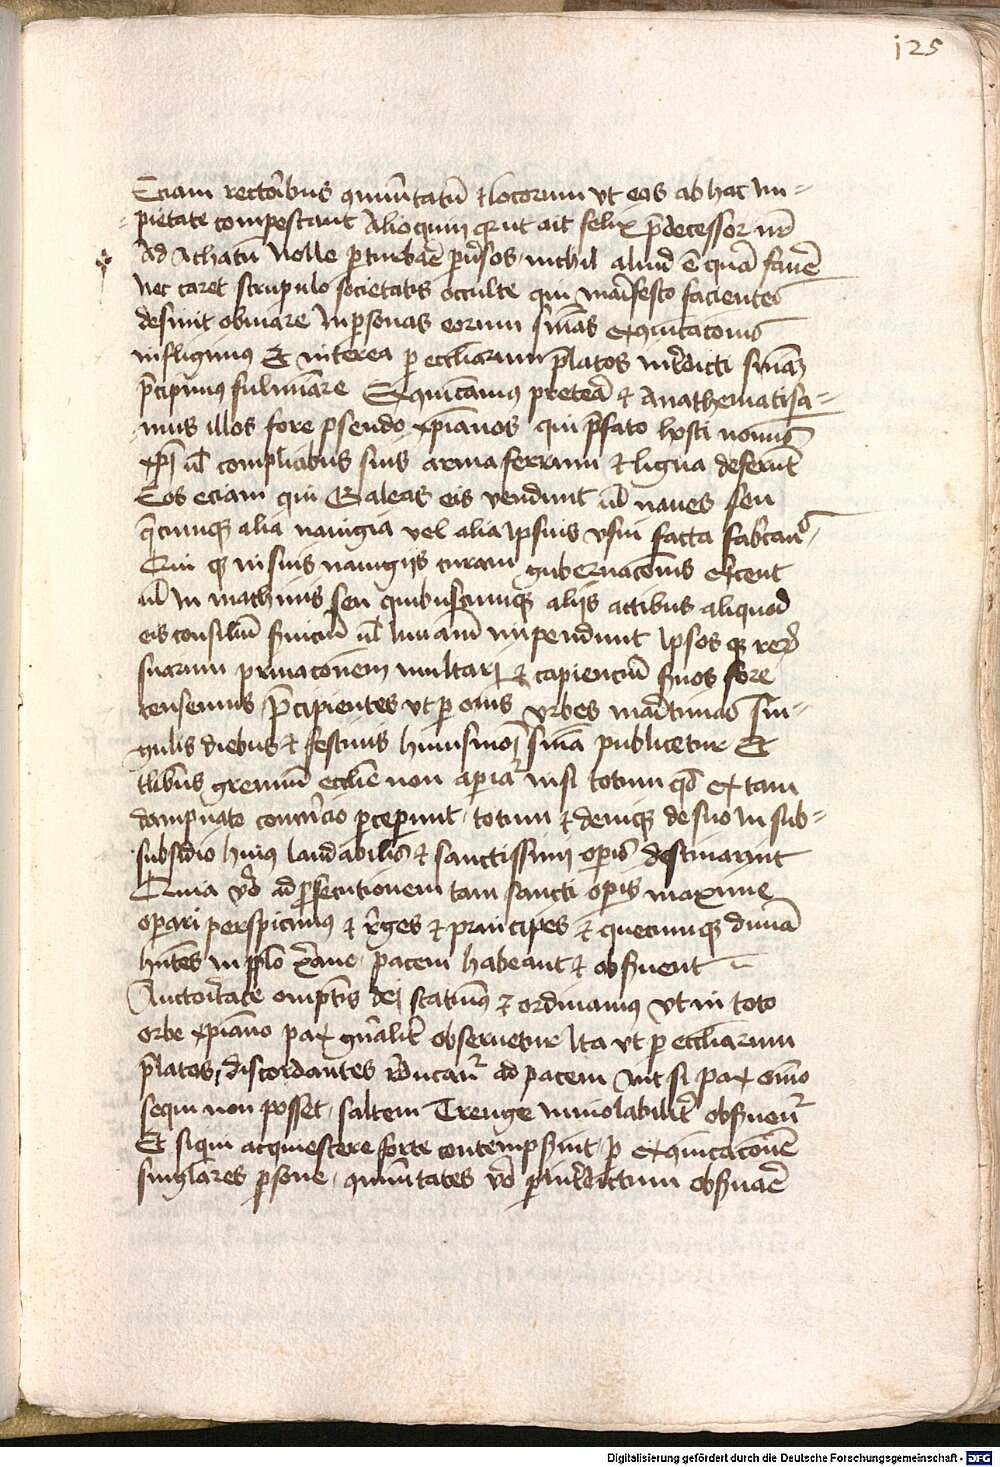 125
Eciam rectoribus comunitatum et locorum vt eos ab hac im=
=pietate compescant Alioquin prout ait felix predecessor noster
Ad Achatium Nolle perturbare peruersos, nichil aliud est quam fauere
Nec caret scrupulo societatis occulte qui manifesto facientes
desinit obuiare In personas eorum sententias excommunicationis
infligimus Et interea per ecclesiarum prelatos interdicti sententiam
precipimus fulminare Excommunicamus preterea et Anathematisa=
mus illos fore pseudo christianos qui prefato hosti nominis
christi uel complicibus suis arma ferrum et ligna deferunt
Eos eciam qui Galeas eis vendunt uel naues seu
quecumque alia nauigia vel alia ipsius vsui facta fabricant
Qui que in suis nauigijs curam gubernacionis exercent
uel in machinis seu quibuscumque alijs actibus aliquod
eis consilium seruicium uel Iuuamen impendunt Ipsos que rerum
suarum priuacionem multari et capiencium seruos fore
censemus, Precipientes vt per omnes vrbes maritimas sin=
gulis diebus et festiuis huiusmodi sententia publicetur Et
talibus gremium ecclesie non aperiatur nisi totum quod ex tam
dampnato comercio perceperunt, totum et denique de suo in sub=
subsidio huius laudabilis et sanctissimi operis destinarint
Quia vero ad persecutionem tam sancti operis maxime
operari perspicimus et reges et principes et quecumque
habentes in populo christiano pacem habeant et obseruent
Auctoritate omnipotentis dei statuimus et ordinamus vt in toto
orbe christiano pax generaliter obseruetur Ita vt per ecclesiarum
prelatos, discordantes reducantur ad pacem Aut si pax omnino
sequi non posset, saltem Treuge inuiolabiliter obseruentur
Et siqui acquiescere forte contempserint, per excommunicationem
singulares persone, comunitates vero per interdictum obseruare
Digitalisierung gefördert durch die Deutsche Forschungsgemeinschaft - DFG